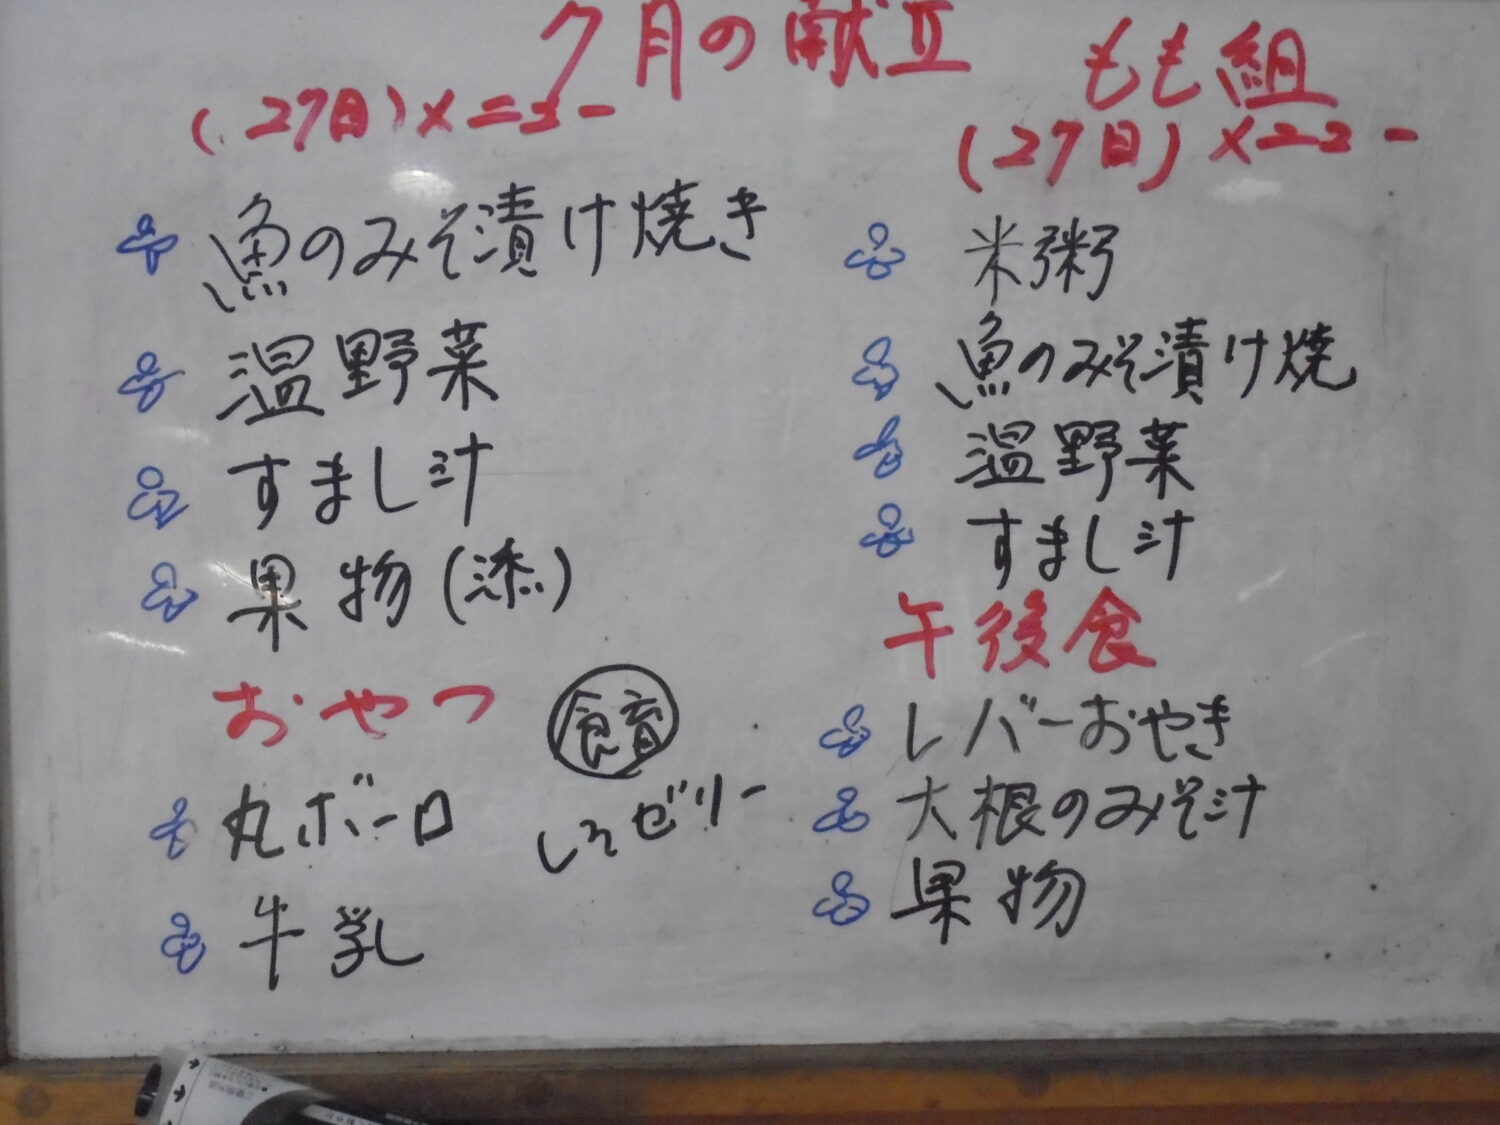 7月の献立
(27日)メニュー
魚のみそ漬け焼き
温野菜
すまし汁
果物(添)
おやつ
丸ボーロ
牛乳
食育
しそゼリー
もも組
(27日)メニュー
米粥
魚のみそ漬け焼
温野菜
すまし汁
午後食
レバーおやき
大根のみそ汁
果物